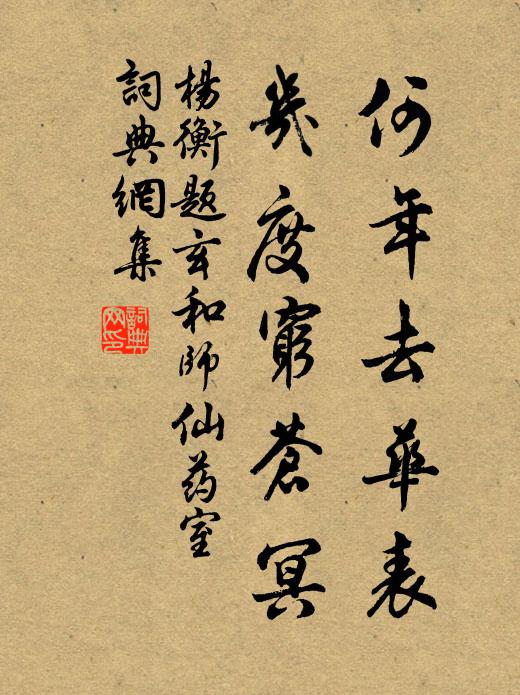 何年去華表
幾度窮蒼冥
楊衡题玄和師仙药室
詞典網集
詞典网印